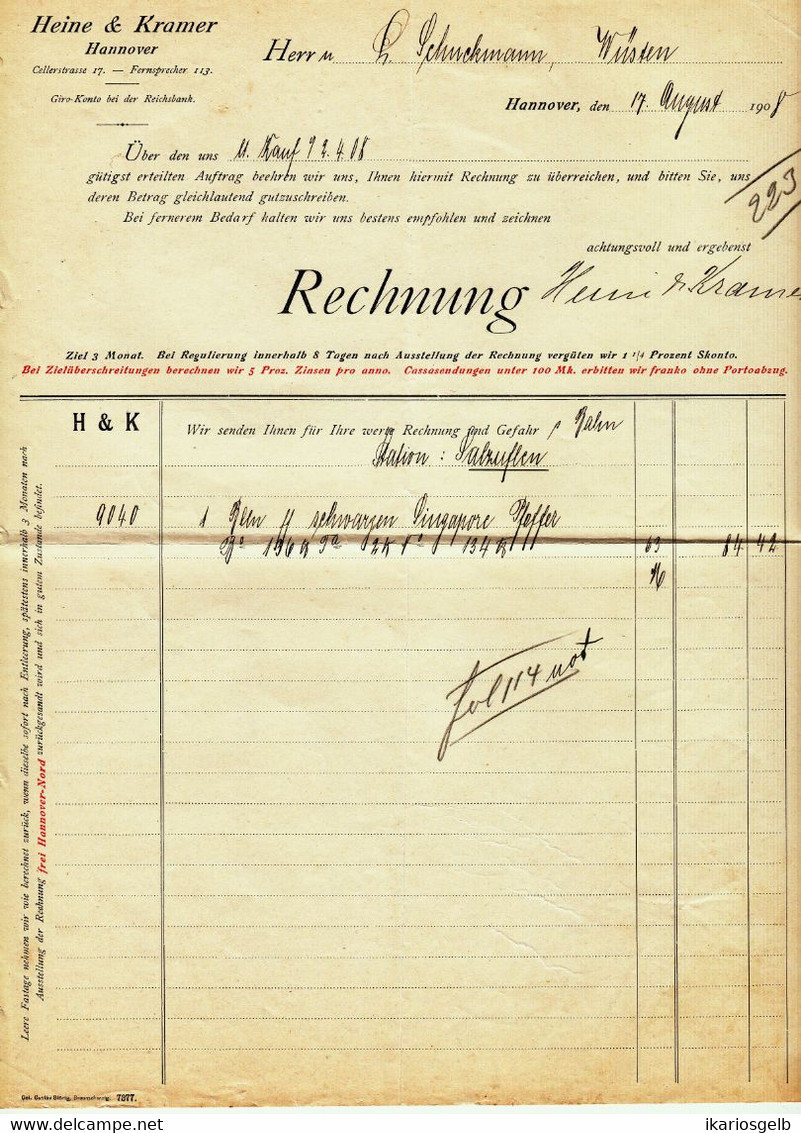 Heine & Kramer
Hannover
Cellerstrasse 17. — Fernsprecher 113.
Giro-Konto bei der Reichsbank.
Herrn L. Schuckmann, Wüsten
Hannover, den 17. August 1908
Über den uns lt. Kauf 2.4.08
gütigst erteilten Auftrag beehren wir uns, Ihnen hiermit Rechnung zu überreichen, und bitten Sie, uns
deren Betrag gleichlautend gutzuschreiben.
Bei fernerem Bedarf halten wir uns bestens empfohlen und zeichnen
223
achtungsvoll und ergebenst
Rechnung
Heine & Kramer
Ziel 3 Monat. Bei Regulierung innerhalb 8 Tagen nach Ausstellung der Rechnung vergüten wir 1 1/4 Prozent Skonto.
Bei Zielüberschreitungen berechnen wir 5 Proz. Zinsen pro anno. Cassasendungen unter 100 Mk. erbitten wir franko ohne Portoabzug.
H & K
Wir senden Ihnen für Ihre werte Rechnung und Gefahr p Bahn
Station: Salzuflen
9040 1 Blln schwarzen Singapore Pfeffer
Bo 136 Ta 2 134 63 84 42
Leere Fastage nehmen wir wie berechnet zurück, wenn dieselbe sofort nach Entleerung, spätestens innerhalb 3 Monaten nach
Ausstellung der Rechnung frei Hannover-Nord zurückgesandt wird und sich in gutem Zustande befindet.
Fol 114 not
7877.
ikariosgelb